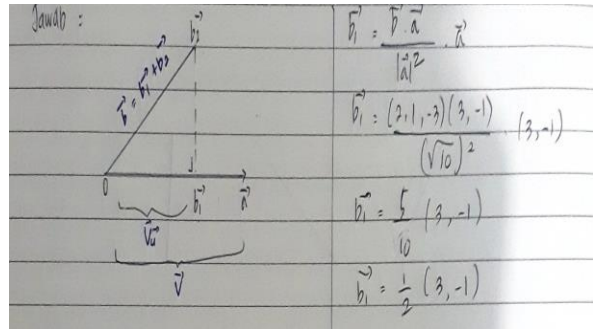 Jawab :
b₂⃗
b⃗ = b₁⃗ + b₂⃗
0
b₁⃗
a⃗
v⃗
b₁⃗ = b⃗ . a⃗ / |a⃗|² . a⃗
b₁⃗ = (2,1,-3)(3,-1) / (√10)² . (3,-1)
b₁⃗ = 5/10 (3,-1)
b₁⃗ = 1/2 (3,-1)